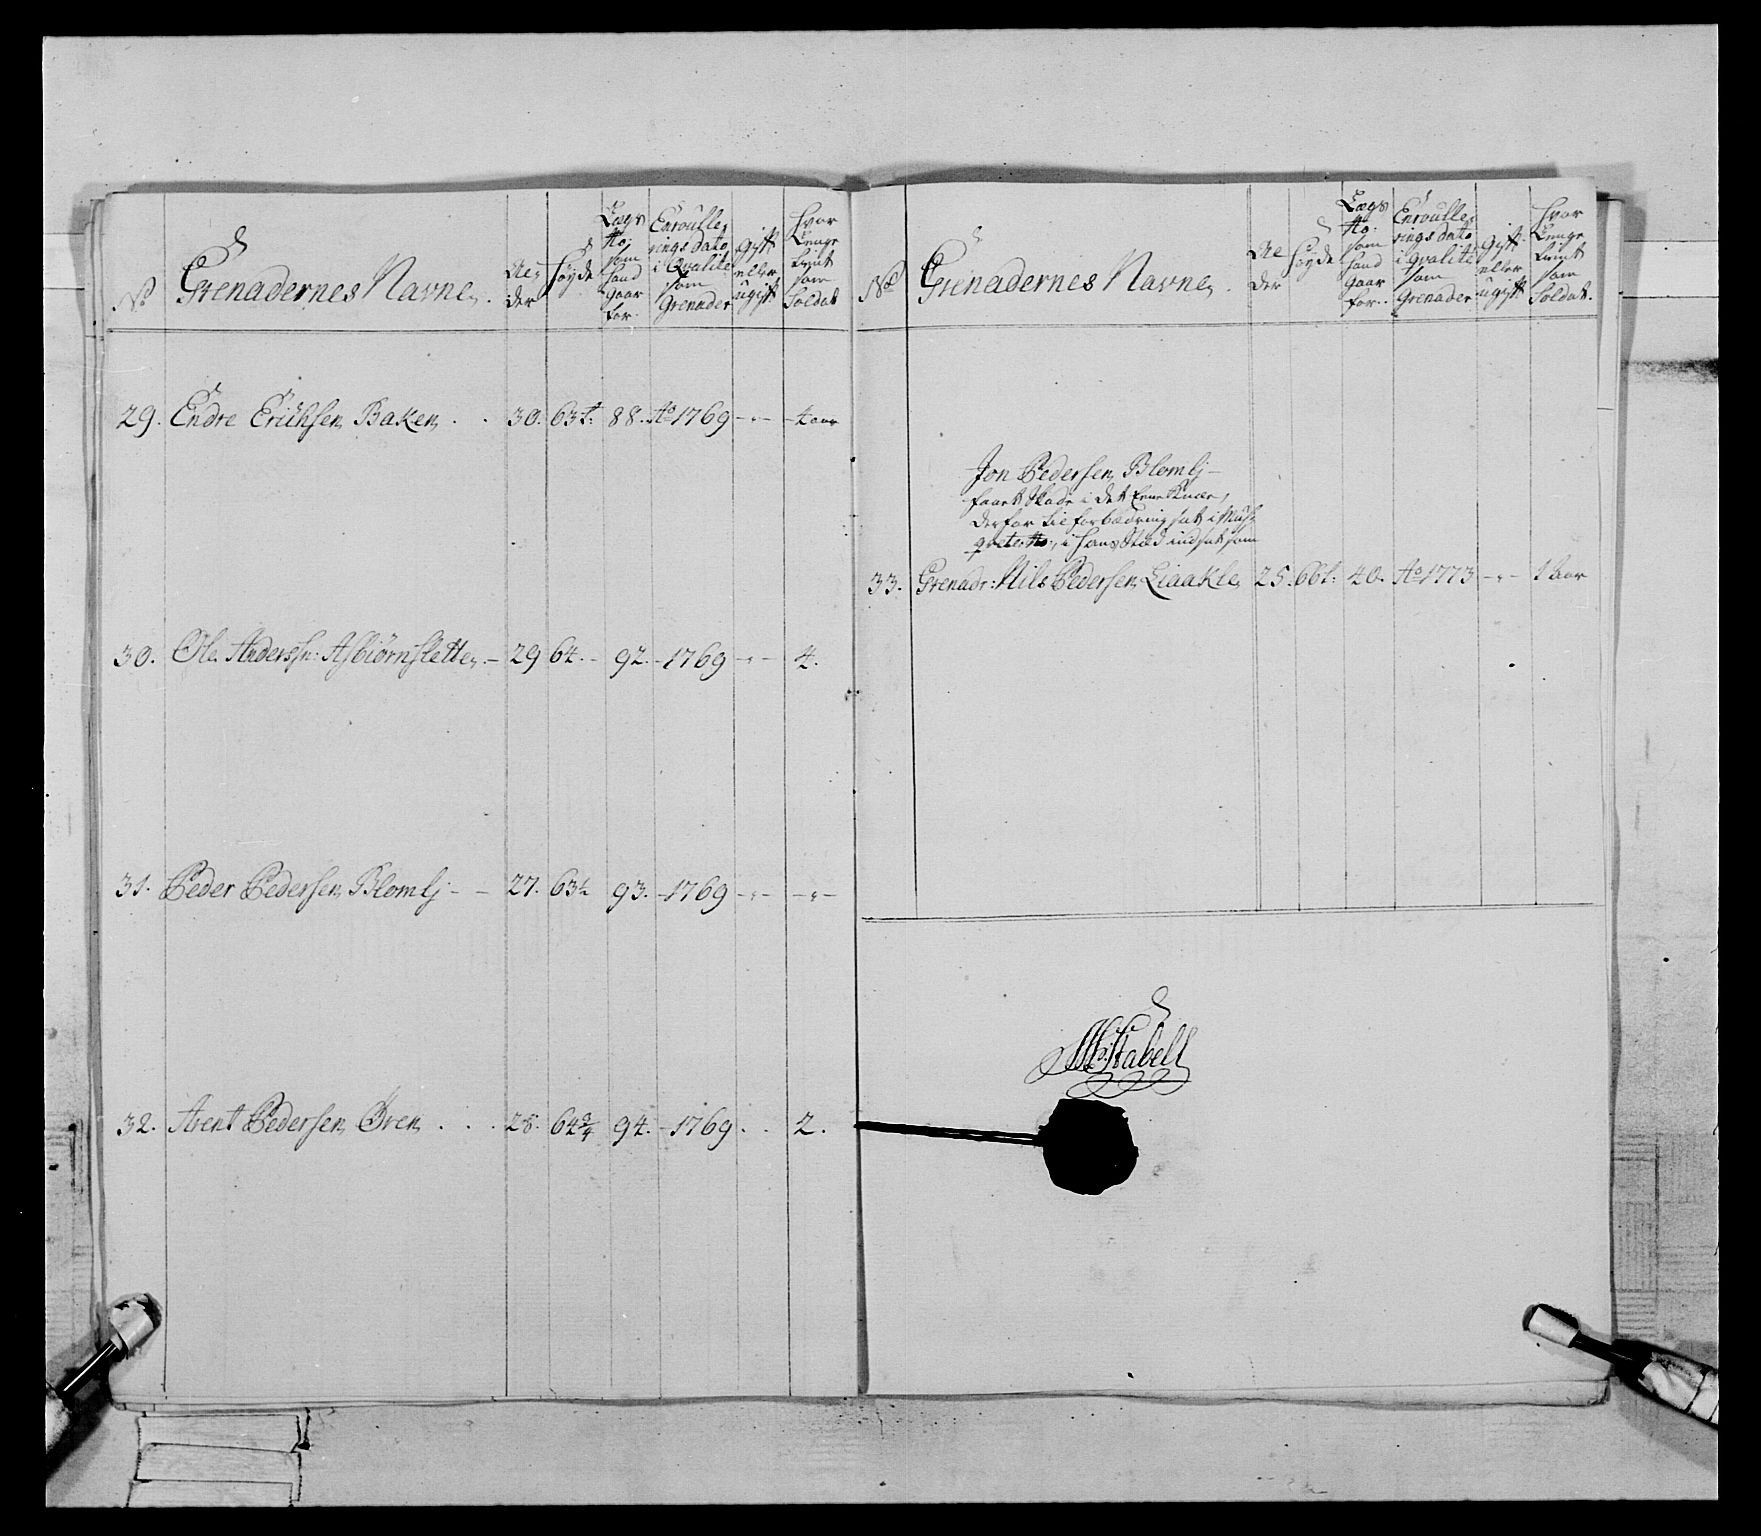 No
Grenadernes Navne.
Al=
der
Høyde
Lægs
No:
som
hand
gaar
for.
Enroulle=
rings dato
i Qvalite
som
Grenader
Gift
eller
ugift
hvor
Lenge
tient
som
Soldat
29. Endre Erichsen Baken . . 30. 63 t: 88. Ao 1769 -"- 4 aar
30. Ole Anderss: Asbiørnslette. - 29 64. - 92. - 1769 -"- 4.
31. Peder Pedersen Blomlj - - 27. 63 ½ 93. - 1769 -"- -"-
32. Arent Pedersen Øren . . . 28. 64 ¾ 94. - 1769 . . 2.
No
Grenadernes Navne .
Al
der
Høyde
Lægs
No:
som
hand
gaar
for.
Enroulle=
rings dato
i qvalite
som
Grenader
Gift
eller
ugift
hvor
Lenge
tient
som
Soldat.
Jon Pedersen Blomlj -
faaet skade i det Eene Knæe,
derfor til forbædring sat i Mus=
qveter No:, i hans Stæd indsat som
33. Grenadr: Nils Pedersen Liaakle 25. 66 t: 40. Ao 1773 -"- 1 aar
Stabell